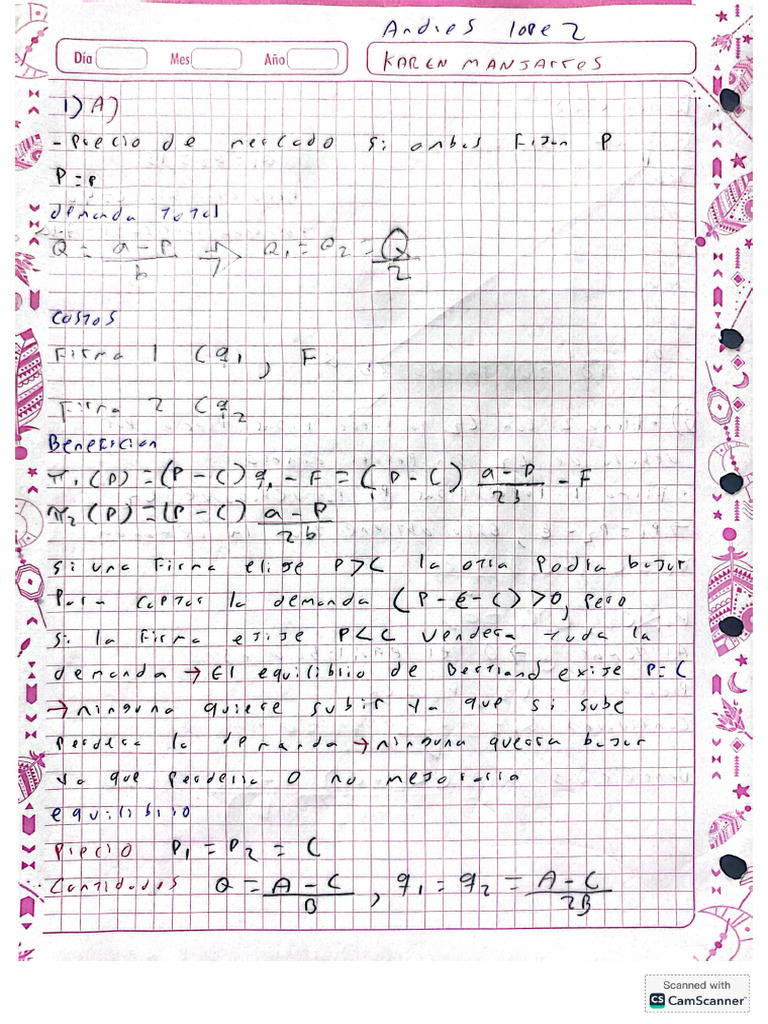 Andres lopez
Día Mes Año
KAREN MANJARRES
1) A)
- Precio de mercado si ambas Fijan P
P = P
demanda total
Q = a - P / b → Q1 = Q2 = Q / 2
Costos
Firma 1 Cq1, F
Firma 2 Cq2
Beneficion
π1(P) = (P - C) q1 - F = (P - C) a - P / 2b - F
π2(P) = (P - C) a - P / 2b
Si una Firma elije P > C la otra podia bajar
Para captar la demanda (P - ε - C) > 0, pero
Si la Firma exije P < C vendera tuda la
demanda → El equilibrio de Bertrand exije P = C
→ ninguna quiere subir ya que si sube
Perdera la demanda → ninguna querra bajar
ya que perderia o no mejoraria
equilibrio
Precio P1 = P2 = C
Cantidades Q = A - C / B, q1 = q2 = A - C / 2B
Scanned with
CS CamScanner